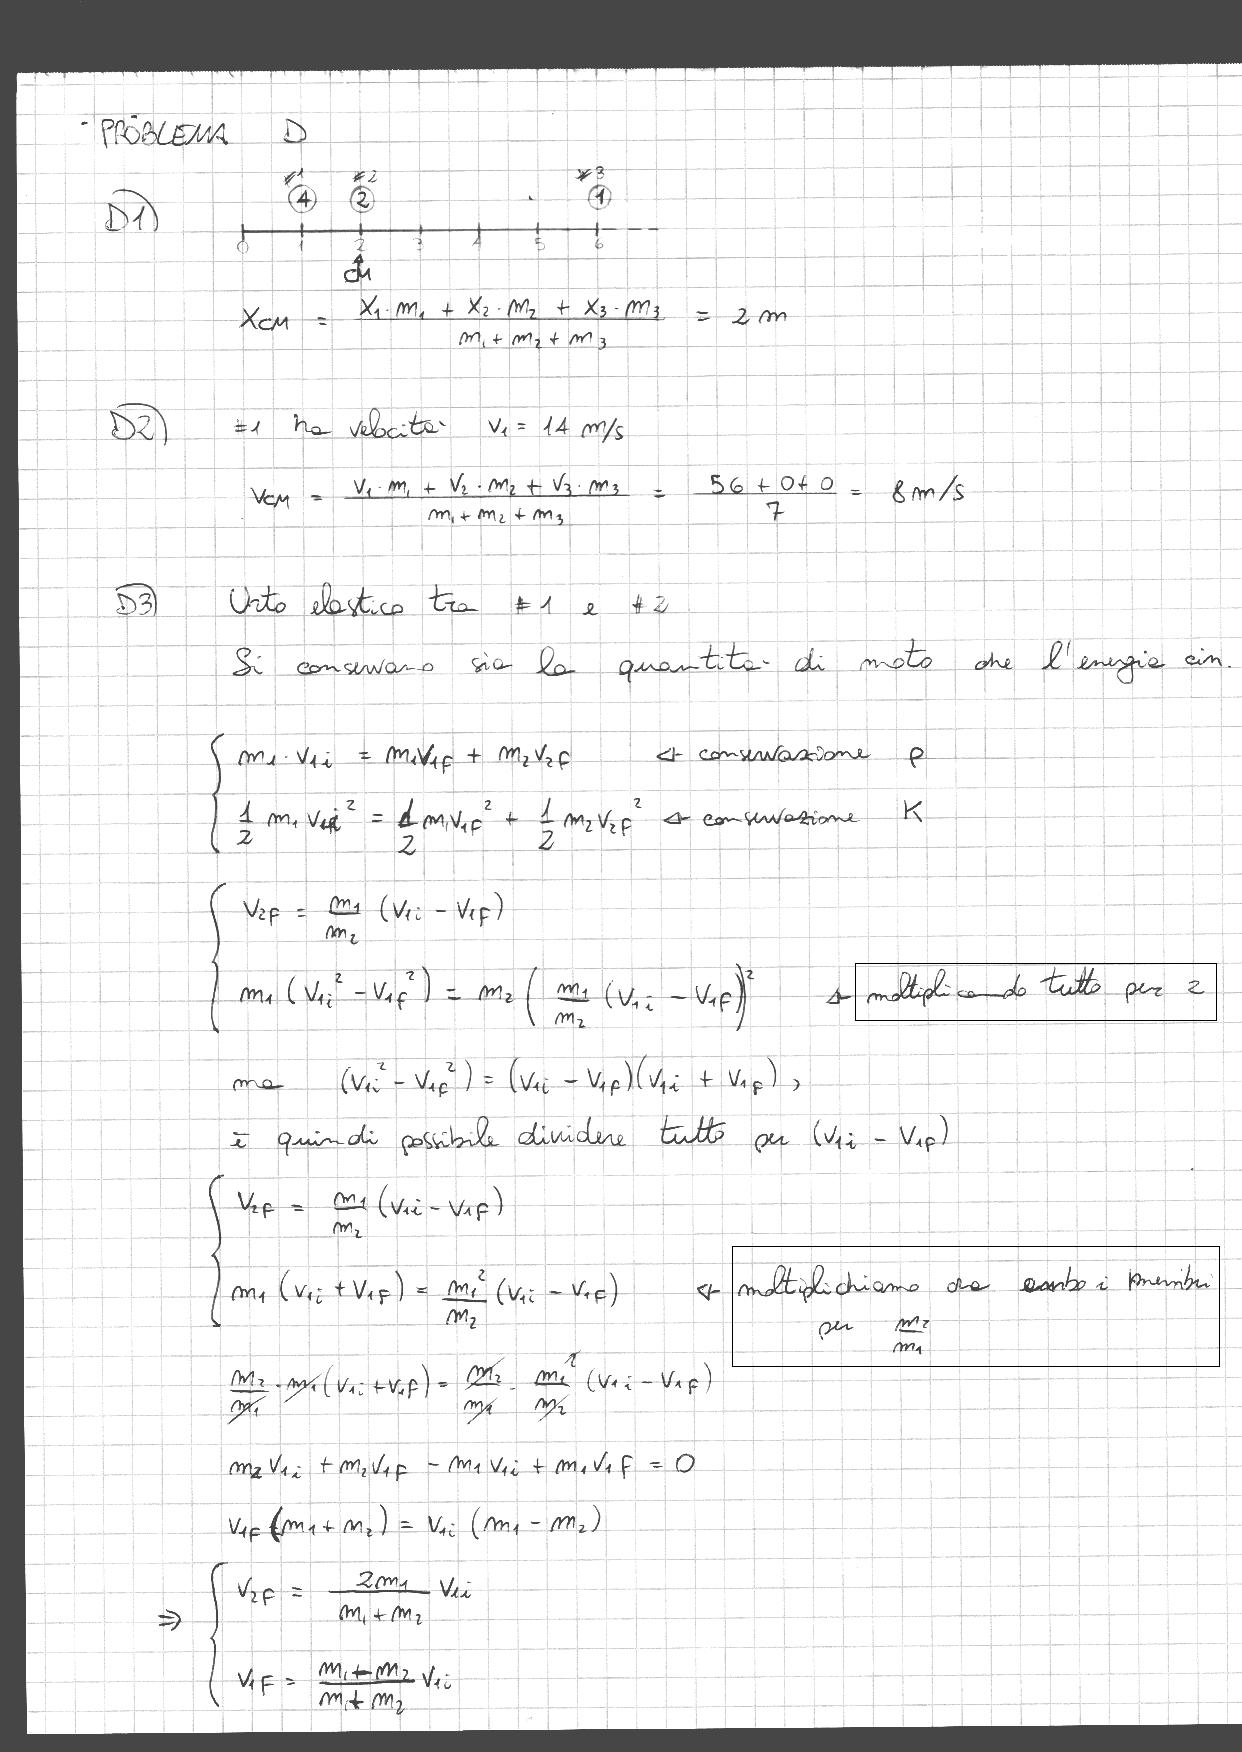 - PROBLEMA D
#1 #2 #3
4 2 1
D1)
0 1 2 3 4 5 6
CM
X_CM = (X_1·m_1 + X_2·m_2 + X_3·m_3) / (m_1 + m_2 + m_3) = 2 m
D2) #1 ha velocita· V_1 = 14 m/s
V_CM = (V_1·m_1 + V_2·m_2 + V_3·m_3) / (m_1 + m_2 + m_3) = (56 + 0 + 0) / 7 = 8 m/s
D3) Urto elastico tra #1 e #2
Si conservano sia la quantita· di moto che l'energia cin.
m_1·V_1i = m_1V_1F + m_2V_2F ← conservazione p
1/2 m_1 V_1i² = 1/2 m_1V_1F² + 1/2 m_2V_2F² ← conservazione K
V_2F = m_1/m_2 (V_1i - V_1F)
m_1 (V_1i² - V_1F²) = m_2 (m_1/m_2 (V_1i - V_1F))² ← moltiplicando tutto per 2
ma (V_1i² - V_1F²) = (V_1i - V_1F)(V_1i + V_1F),
è quindi possibile dividere tutto per (V_1i - V_1F)
V_2F = m_1/m_2 (V_1i - V_1F)
m_1 (V_1i + V_1F) = m_1²/m_2 (V_1i - V_1F) ← moltiplichiamo ora ambo i membri
per m_2/m_1
m_2/m_1 · m_1 (V_1i + V_1F) = m_2/m_1 · m_1²/m_2 (V_1i - V_1F)
m_2 V_1i + m_2 V_1F - m_1 V_1i + m_1 V_1F = 0
V_1F (m_1 + m_2) = V_1i (m_1 - m_2)
⇒ V_2F = 2m_1 / (m_1 + m_2) V_1i
V_1F = (m_1 - m_2) / (m_1 + m_2) V_1i